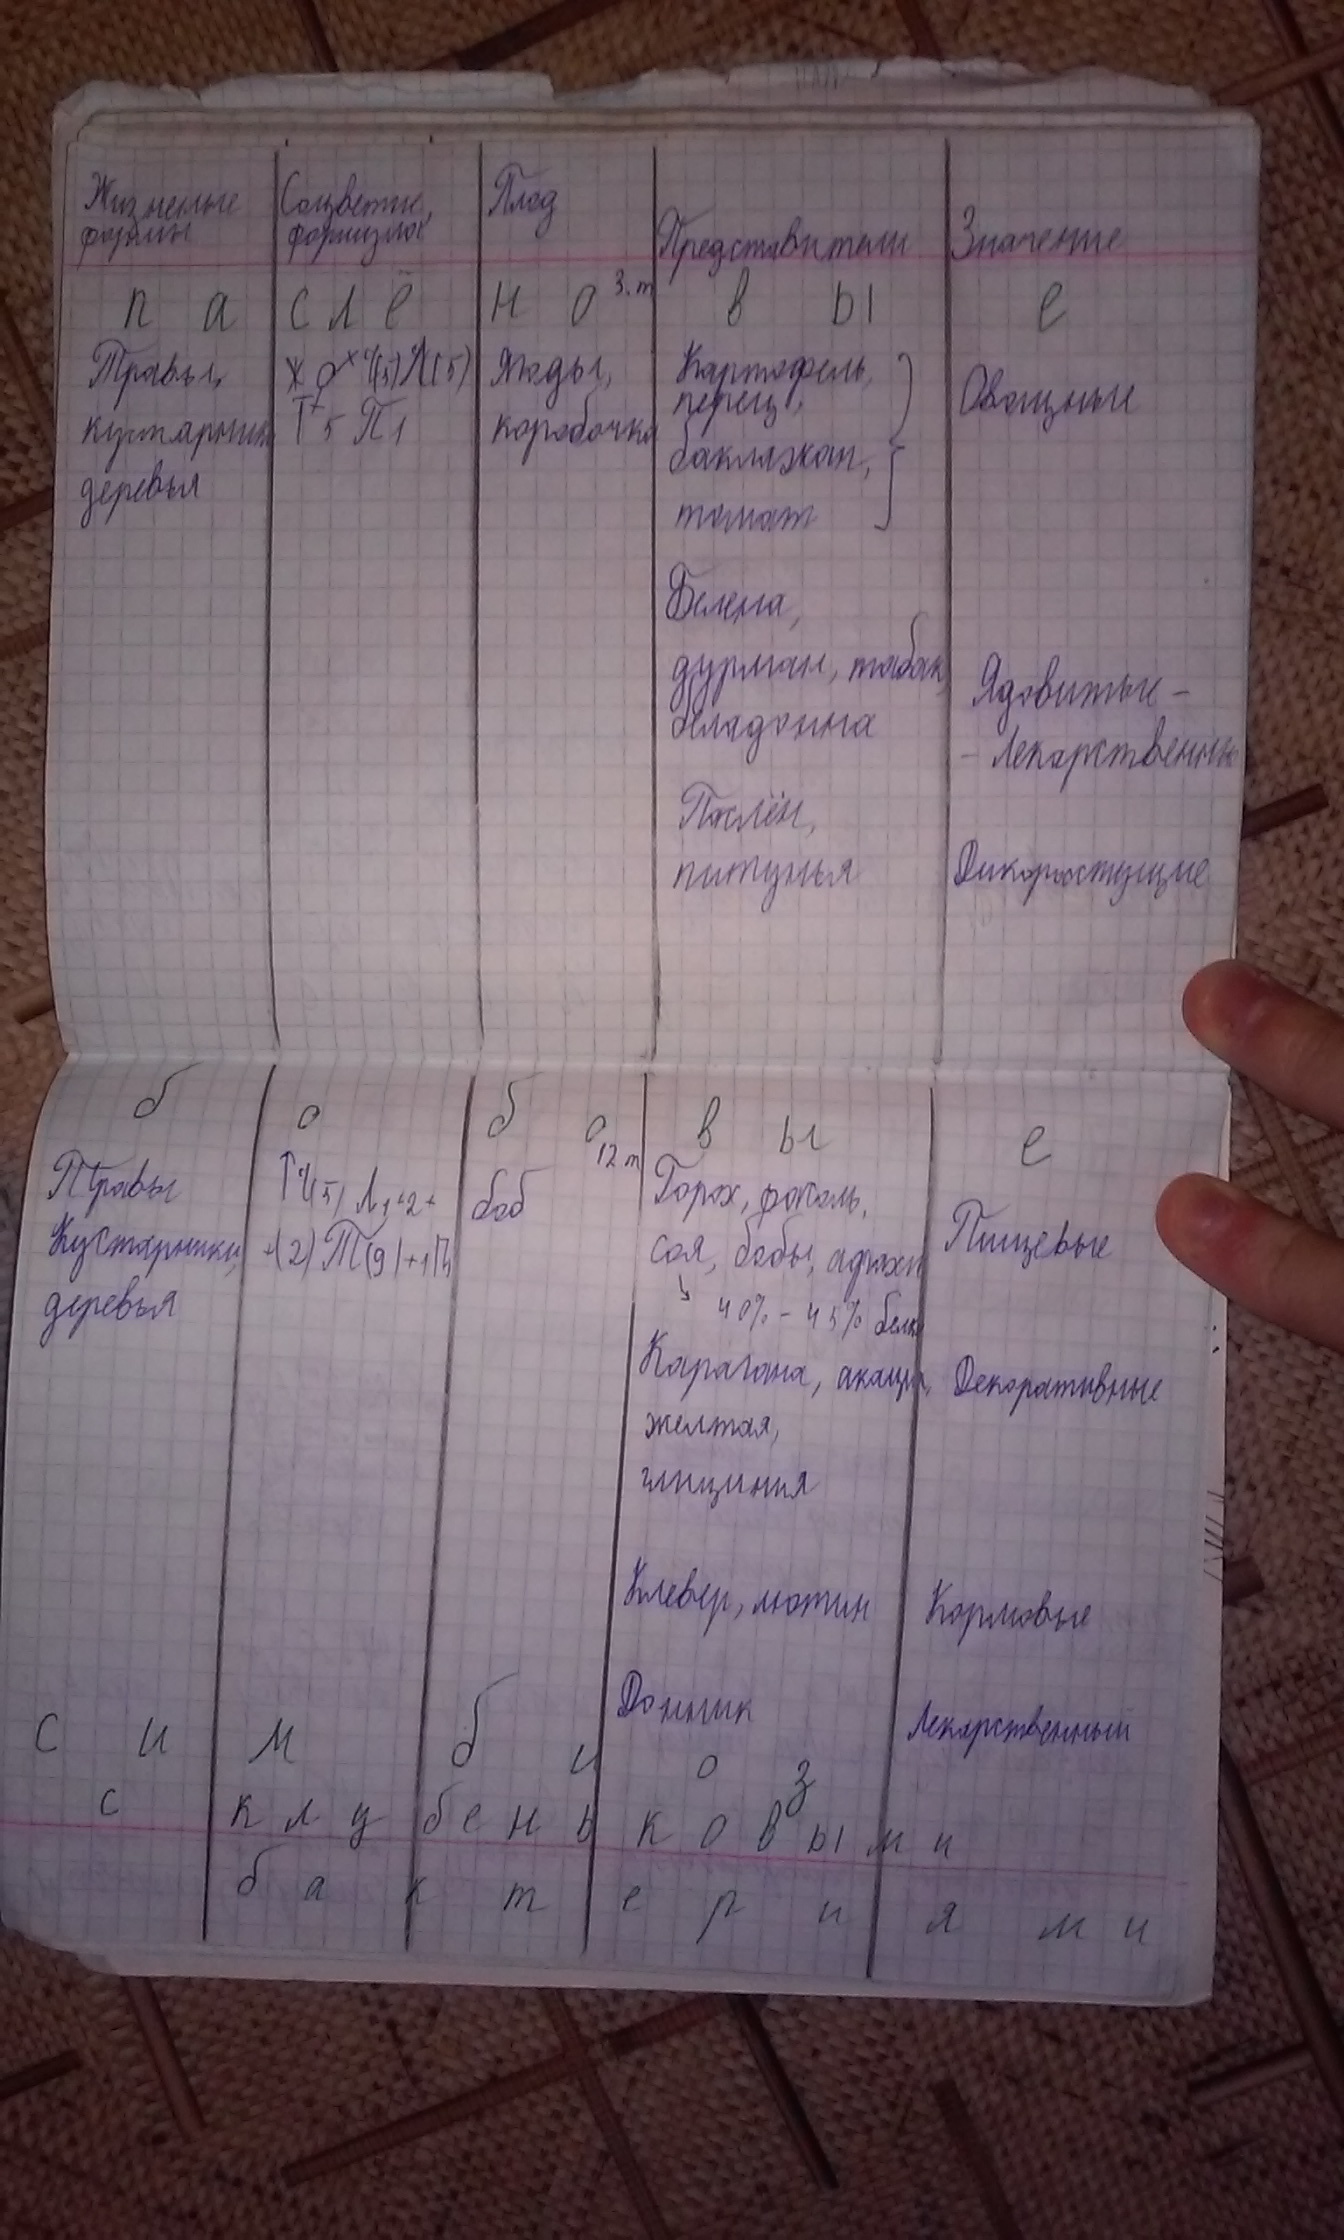 Жизненые
формы
Соцветие,
формула
Плод
Представители
Значение
Паслёновые
3.т
Травы,
кустарники
деревья
Ч(5) Л(5)
Т5 П1
Ягоды,
коробочка
Картофель,
перец,
баклажан,
томат
Овощные
Белена,
дурман, табак,
беладонна
Ядовитые -
- Лекарственны
Паслён,
питунья
Дикоростущие
бобовые
12 т
Травы
Кустарники,
деревья
↑Ч(5) Л1+2+
+(2) Т(9)+1П1
боб
Горох, фасоль,
соя, бобы, арахис
↘ 40% - 45% белка
Пищевые
Карагана, акация
желтая,
глициния
Декоративные
Клевер, люпин
Кормовые
Донник
Лекарственный
симбиоз
с клубеньковыми
бактериями